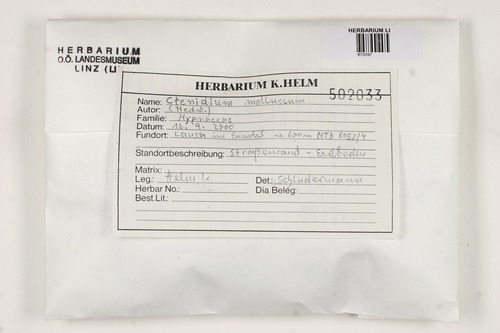 HERBARIUM LI
HERBARIUM
O.Ö. LANDESMUSEUM
LINZ (LI)
HERBARIUM K.HELM
502033
Name: Ctenidium molluscum
Autor: (Hedw.)
Familie: Hypnaceae
Datum: 16. 4. 2000
Fundort: Laussa im Ennstal 600m MTB 8052/4
Standortbeschreibung: Straßenrand - Erdboden
Matrix:
Leg.: Helm k Det: Schlüdermann
Herbar No.: Dia Beleg:
Best.Lit.: